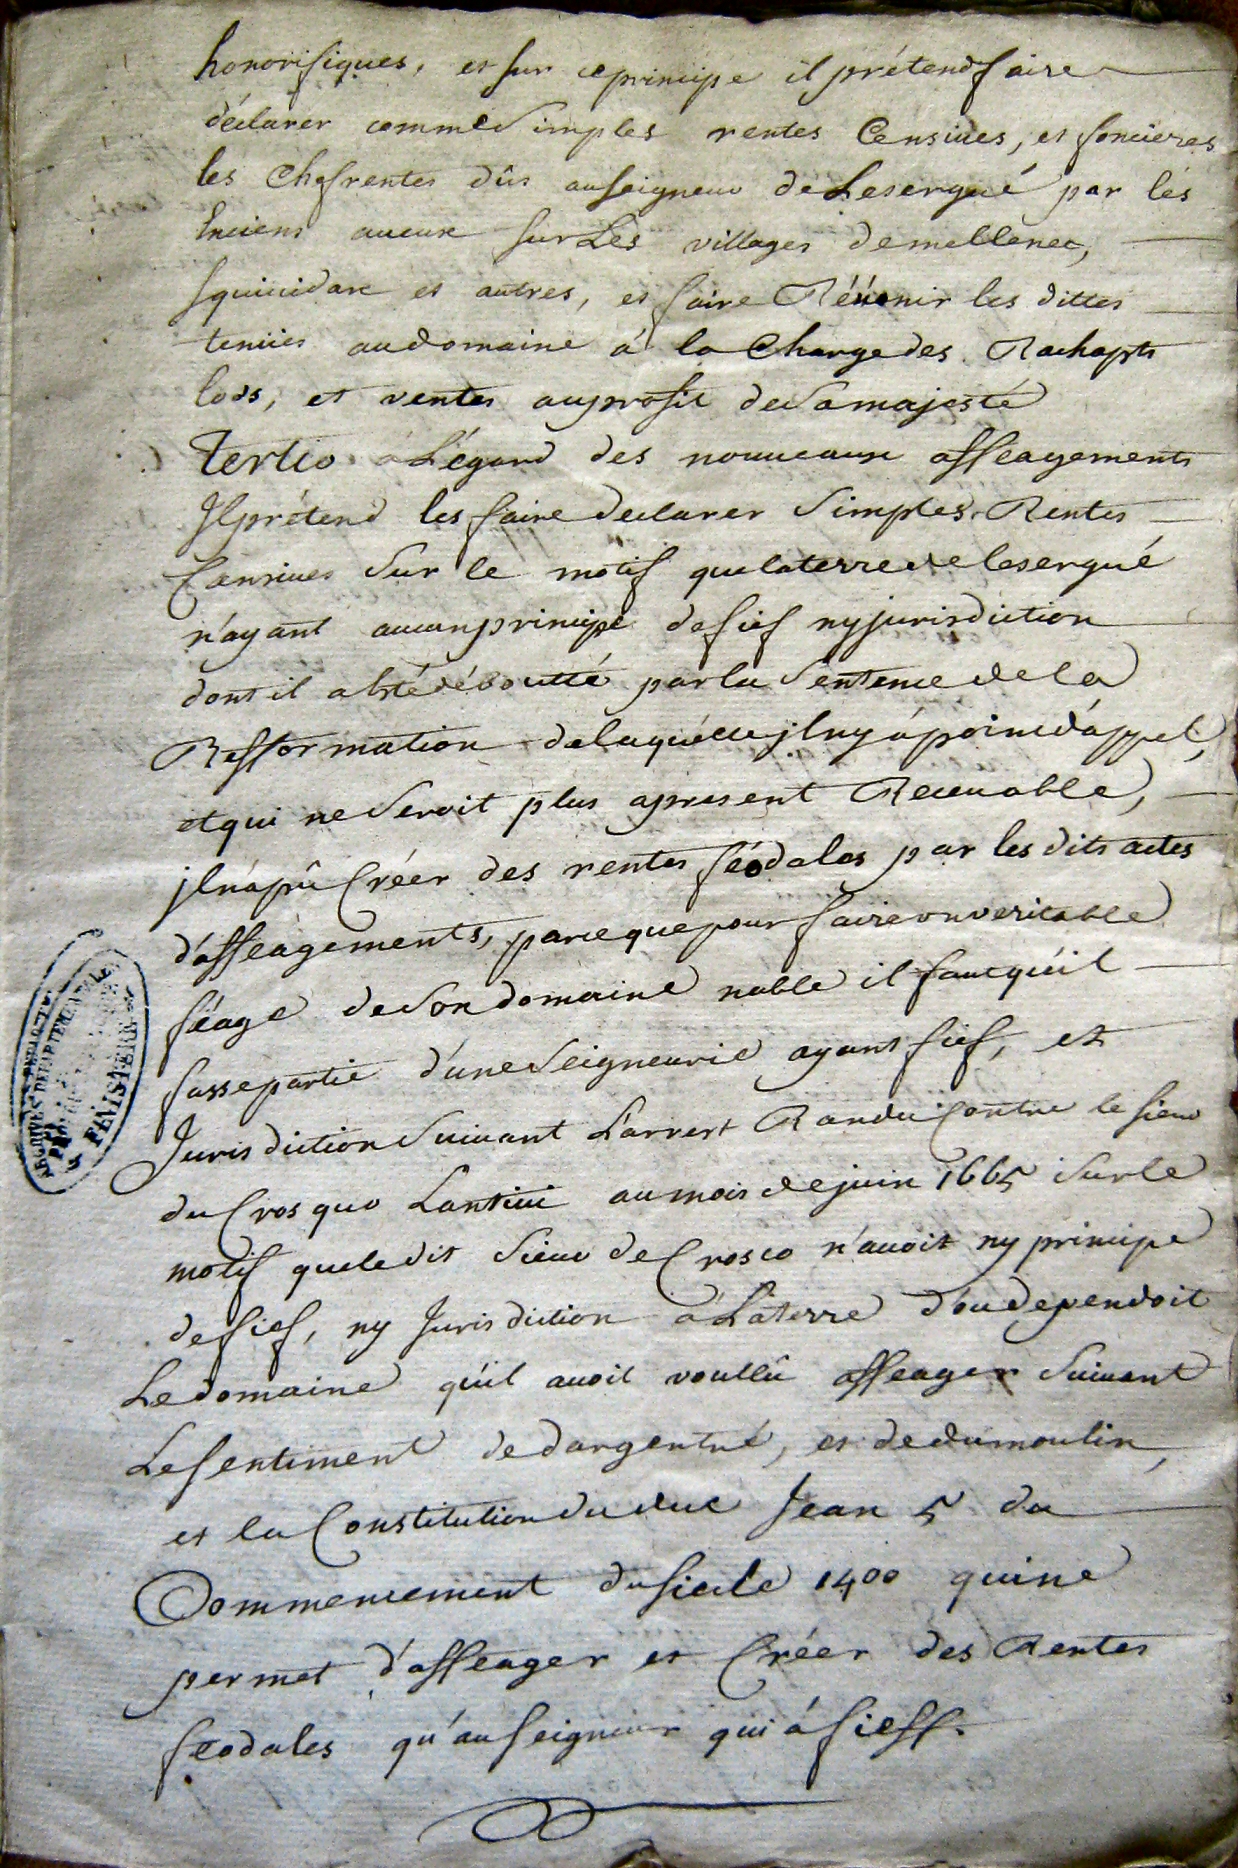 honorifiques, et sur ce principe il prétend faire
déclarer comme simples rentes Censives, et foncieres
les Chefrentes dûs au seigneur de Lesergué par les
Enciens aveux sur Les villages de mellenec,
squividan et autres, et faire Réünir les dittes
tenües au domaine á la Charge des Rachapts
lods, et ventes au profit de Sa majesté
Tertio á L'égard des nouveaux afféagements
Il prétend les faire declarer Simples Rentes
Censives Sur le motif que la terre de lesergué
n'ayant aucun principe de fief ny jurisdiction
dont il a été déboutté par la Sentence de la
Refformation de laquélle jl ny á point d'appel,
et qui ne Seroit plus apresent Recevable,
jl n'a pû Créer des rentes féodales par les dits actes
d'afféagements, parce que pour faire un veritable
féage de Son domaine noble il faut qu'il
fasse partie d'une Seigneurie ayant fief, et
Jurisdiction Suivant L'arrest Randu Contre le sieur
du Crosquo Lantivi au mois de juin 1665 Sur le
motif que le dit Sieur de Crosco n'avoit ny principe
de fief, ny Jurisdiction á La terre d'ou dependoit
Le domaine qu'il avoit voullû affeager Suivant
Le sentiment de dargentré, et de dumoulin,
et la Constitution du duc Jean 5 du
Commencement du siecle 1400 qui ne
permet d'affeager et Créer des Rentes
feodales qu'au seigneur qui á fieff.
ARCHIVES DEPARTEMENTALES
FINISTÈRE